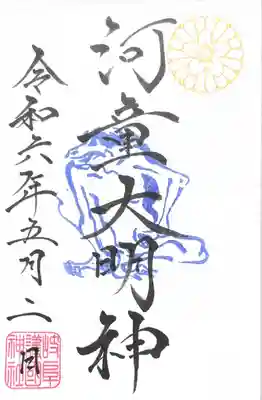 河童大明神
令和六年五月二日
岐阜
護國
神社